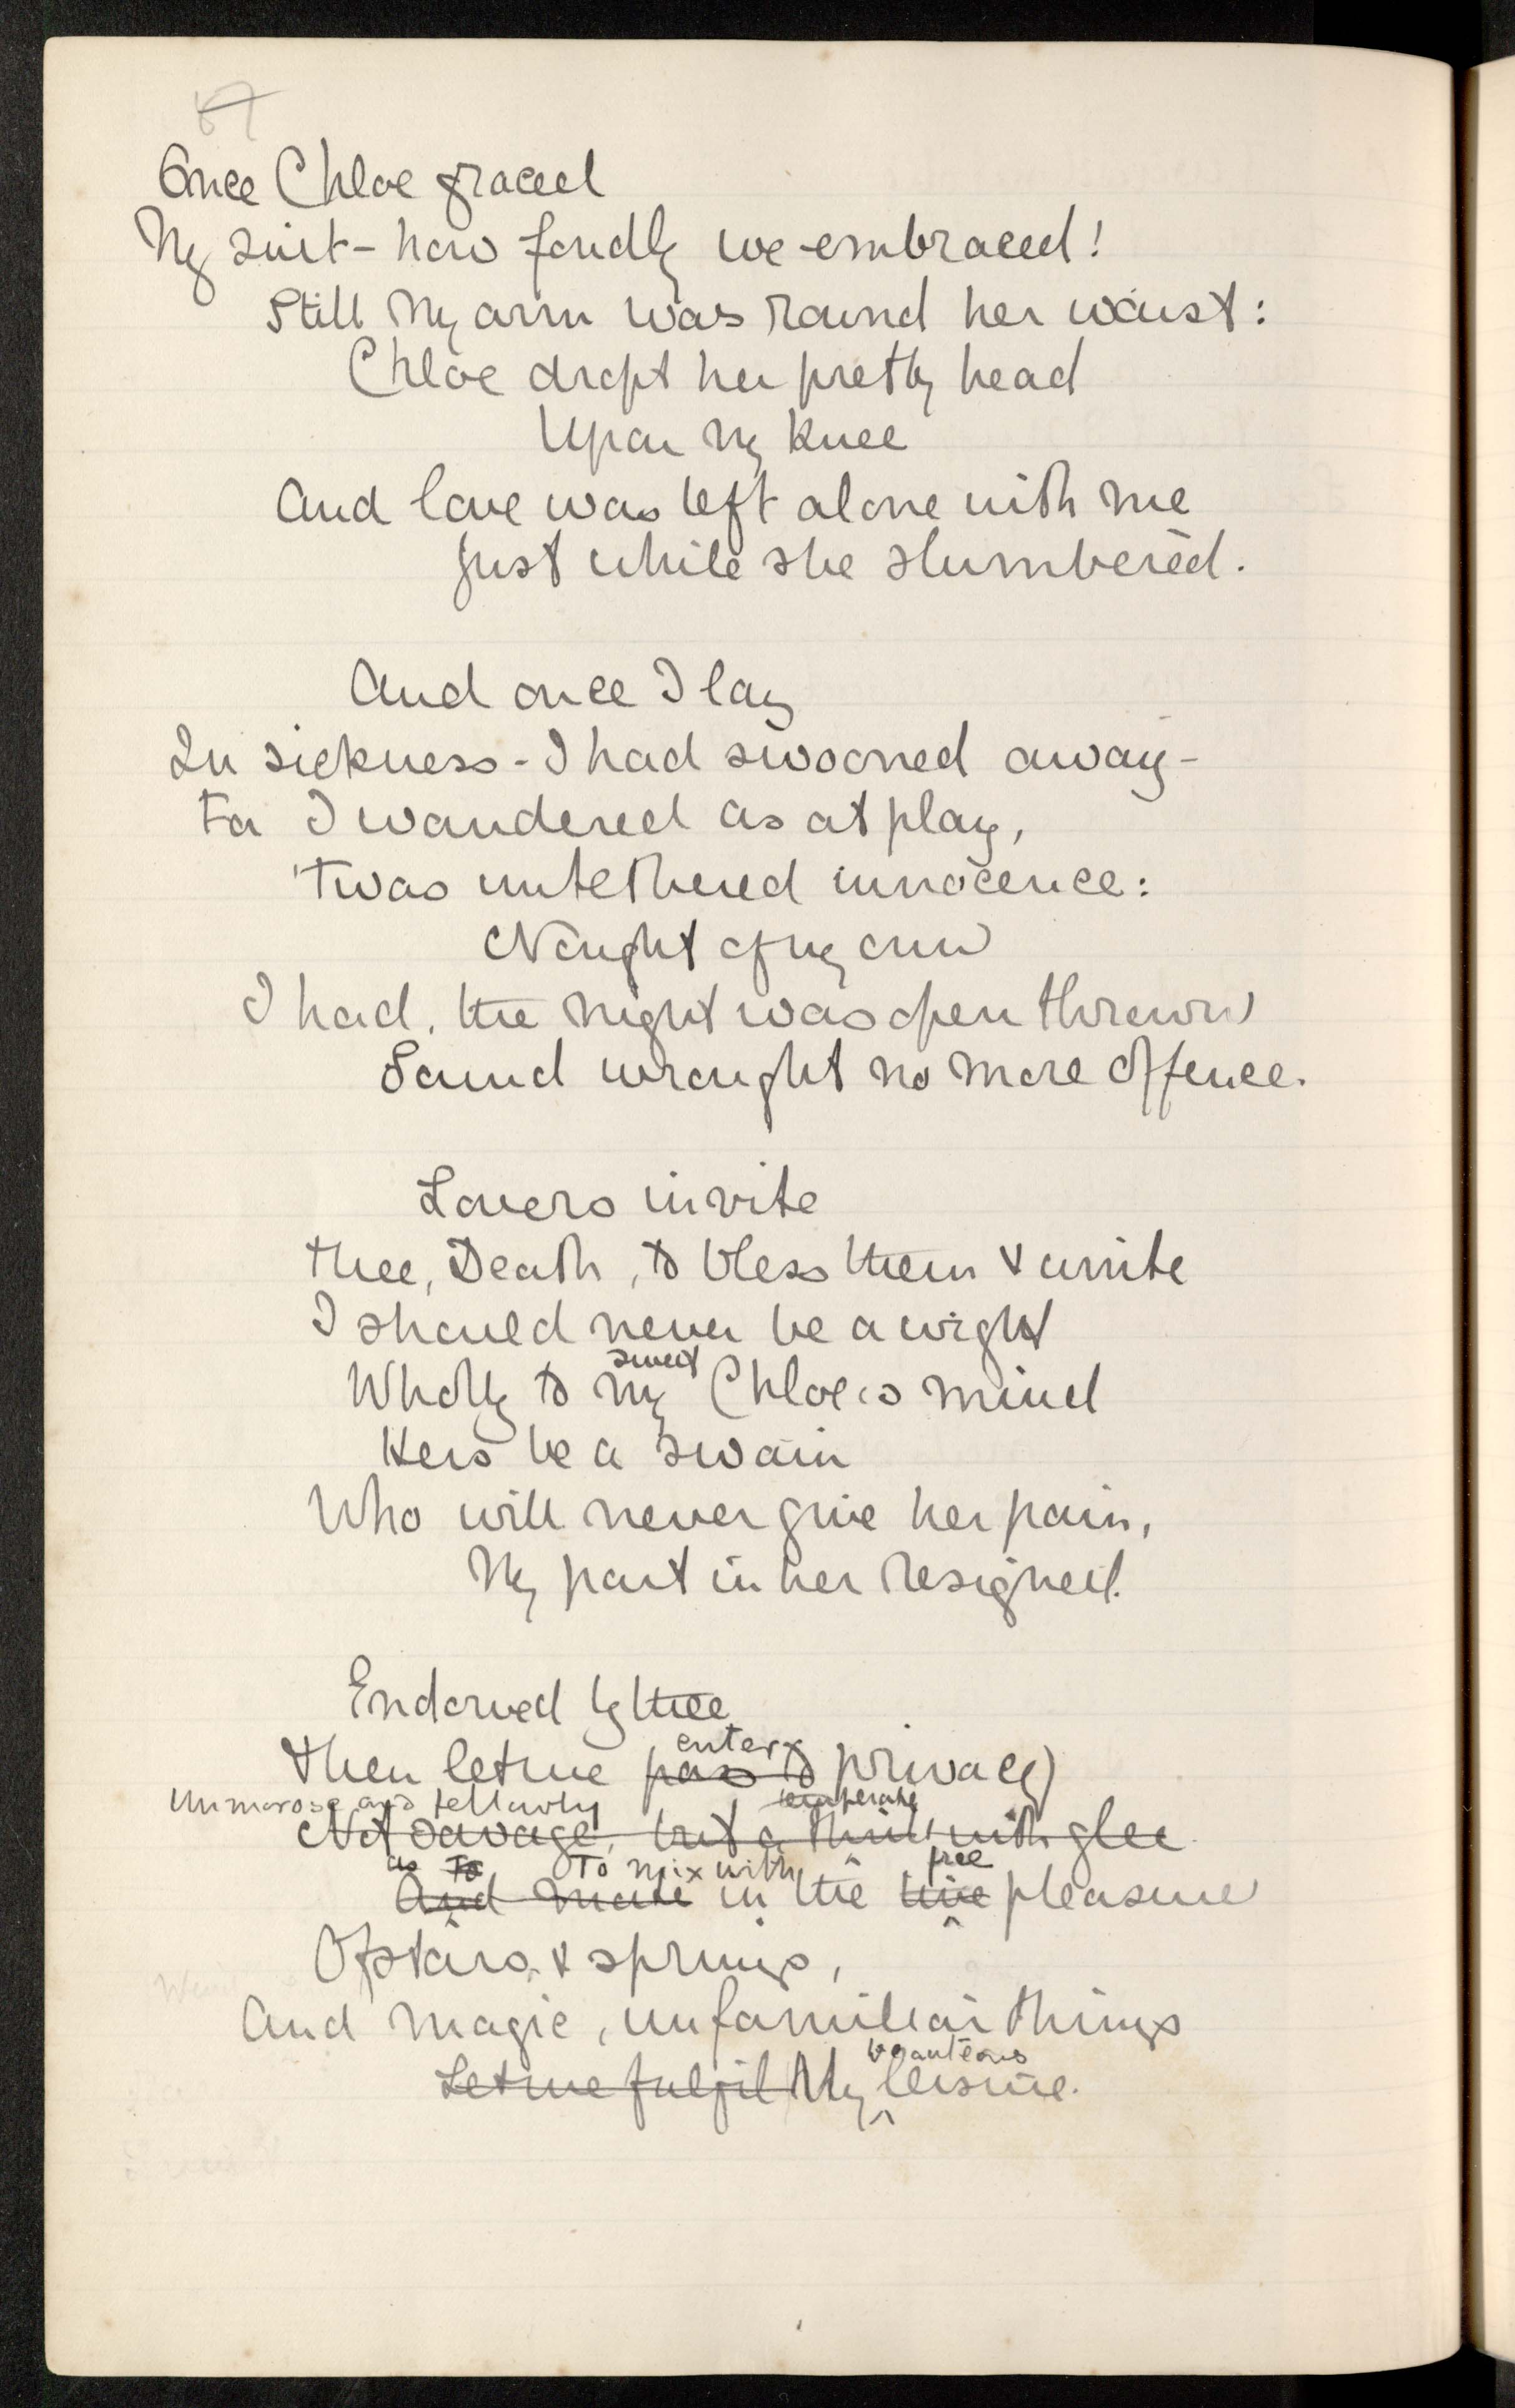 Once Chloe graced
My suit - how fondly we embraced!
Still my arm was round her waist:
Chloe dropt her pretty head
Upon my knee
And love was left alone with me
Just while she slumbered.
And once I lay
In sickness - I had swooned away -
For I wandered as at play,
'Twas untethered innocence:
Naught of my own
I had, the night was open thrown
Sound wrought no more offence.
Lovers invite
Thee, Death, to bless them & unite
I should never be a wight
sweet
Wholly to my Chloe's mind
Hers be a swain
Who will never give her pain,
My part in her resigned.
Endowed by thee
enter
Then let me pass to privacy
Unmorose and fellowly temperate
Not savage, but a with glee
as To To mix with free
And more in the live pleasure
Of stars & springs,
And magic, unfamiliar things
beauteous
Let me fulfil My leisure.